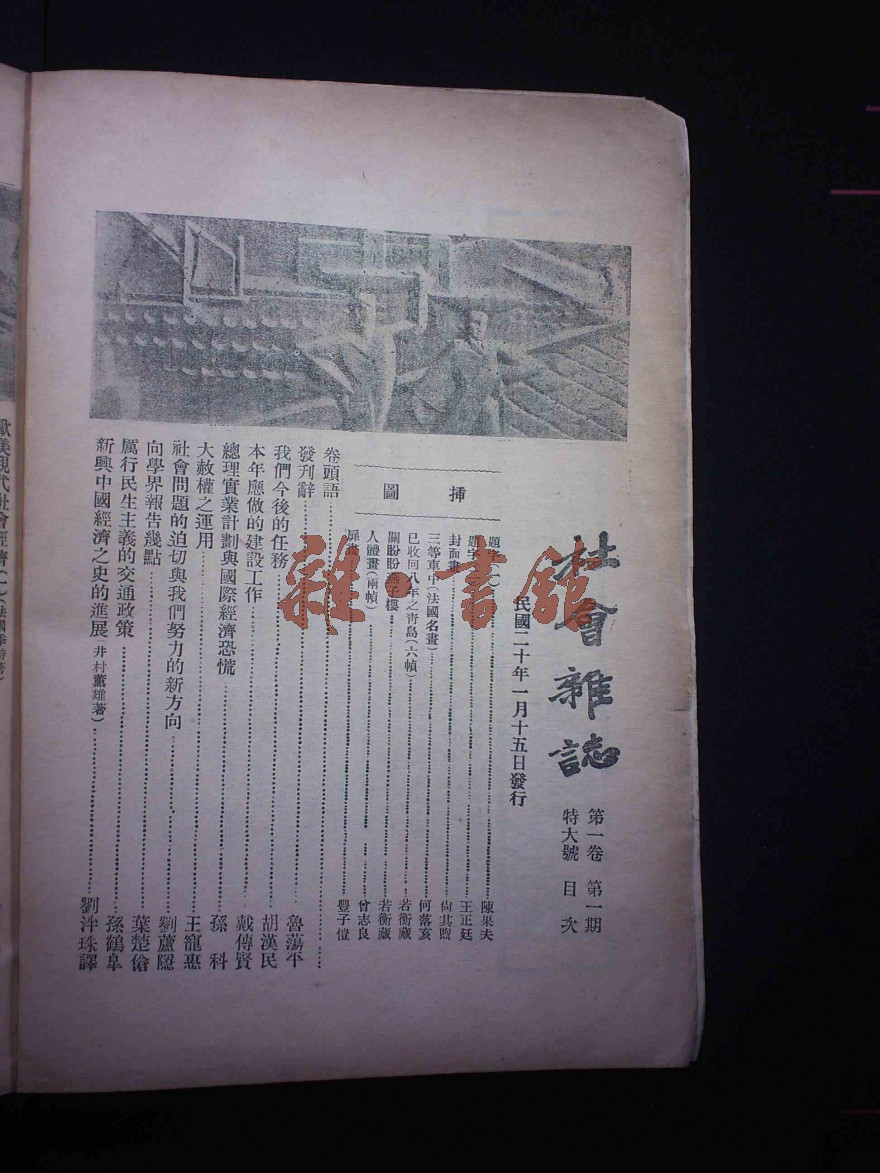 社會雜誌
第一卷 第一期
特大號 目次
民國二十年一月十五日發行
插圖
題字(一)……陳果夫
題字……王正廷
封面畫……尙其煦
三等車中(法國名畫)……何落亥
已收回八年之靑島(六幀)……若衡藏
關盼盼燕子樓……若衡藏
人體畫(兩幀)……曾志良
扉畫……豐子愷
卷頭語……
發刊辭……魯蕩平
我們今後的任務……胡漢民
本年應做的建設工作……戴傳賢
總理實業計劃與國際經濟恐慌……孫科
大赦權之運用……王寵惠
社會問題的迫切與我們努力的新方向……劉蘆隱
向學界報告幾點……葉楚傖
厲行民生主義的交通政策……孫鶴皐
新興中國經濟之史的進展(井村薰雄著)……劉泮珠譯
歐美現代社會經濟(一)
雜·書館